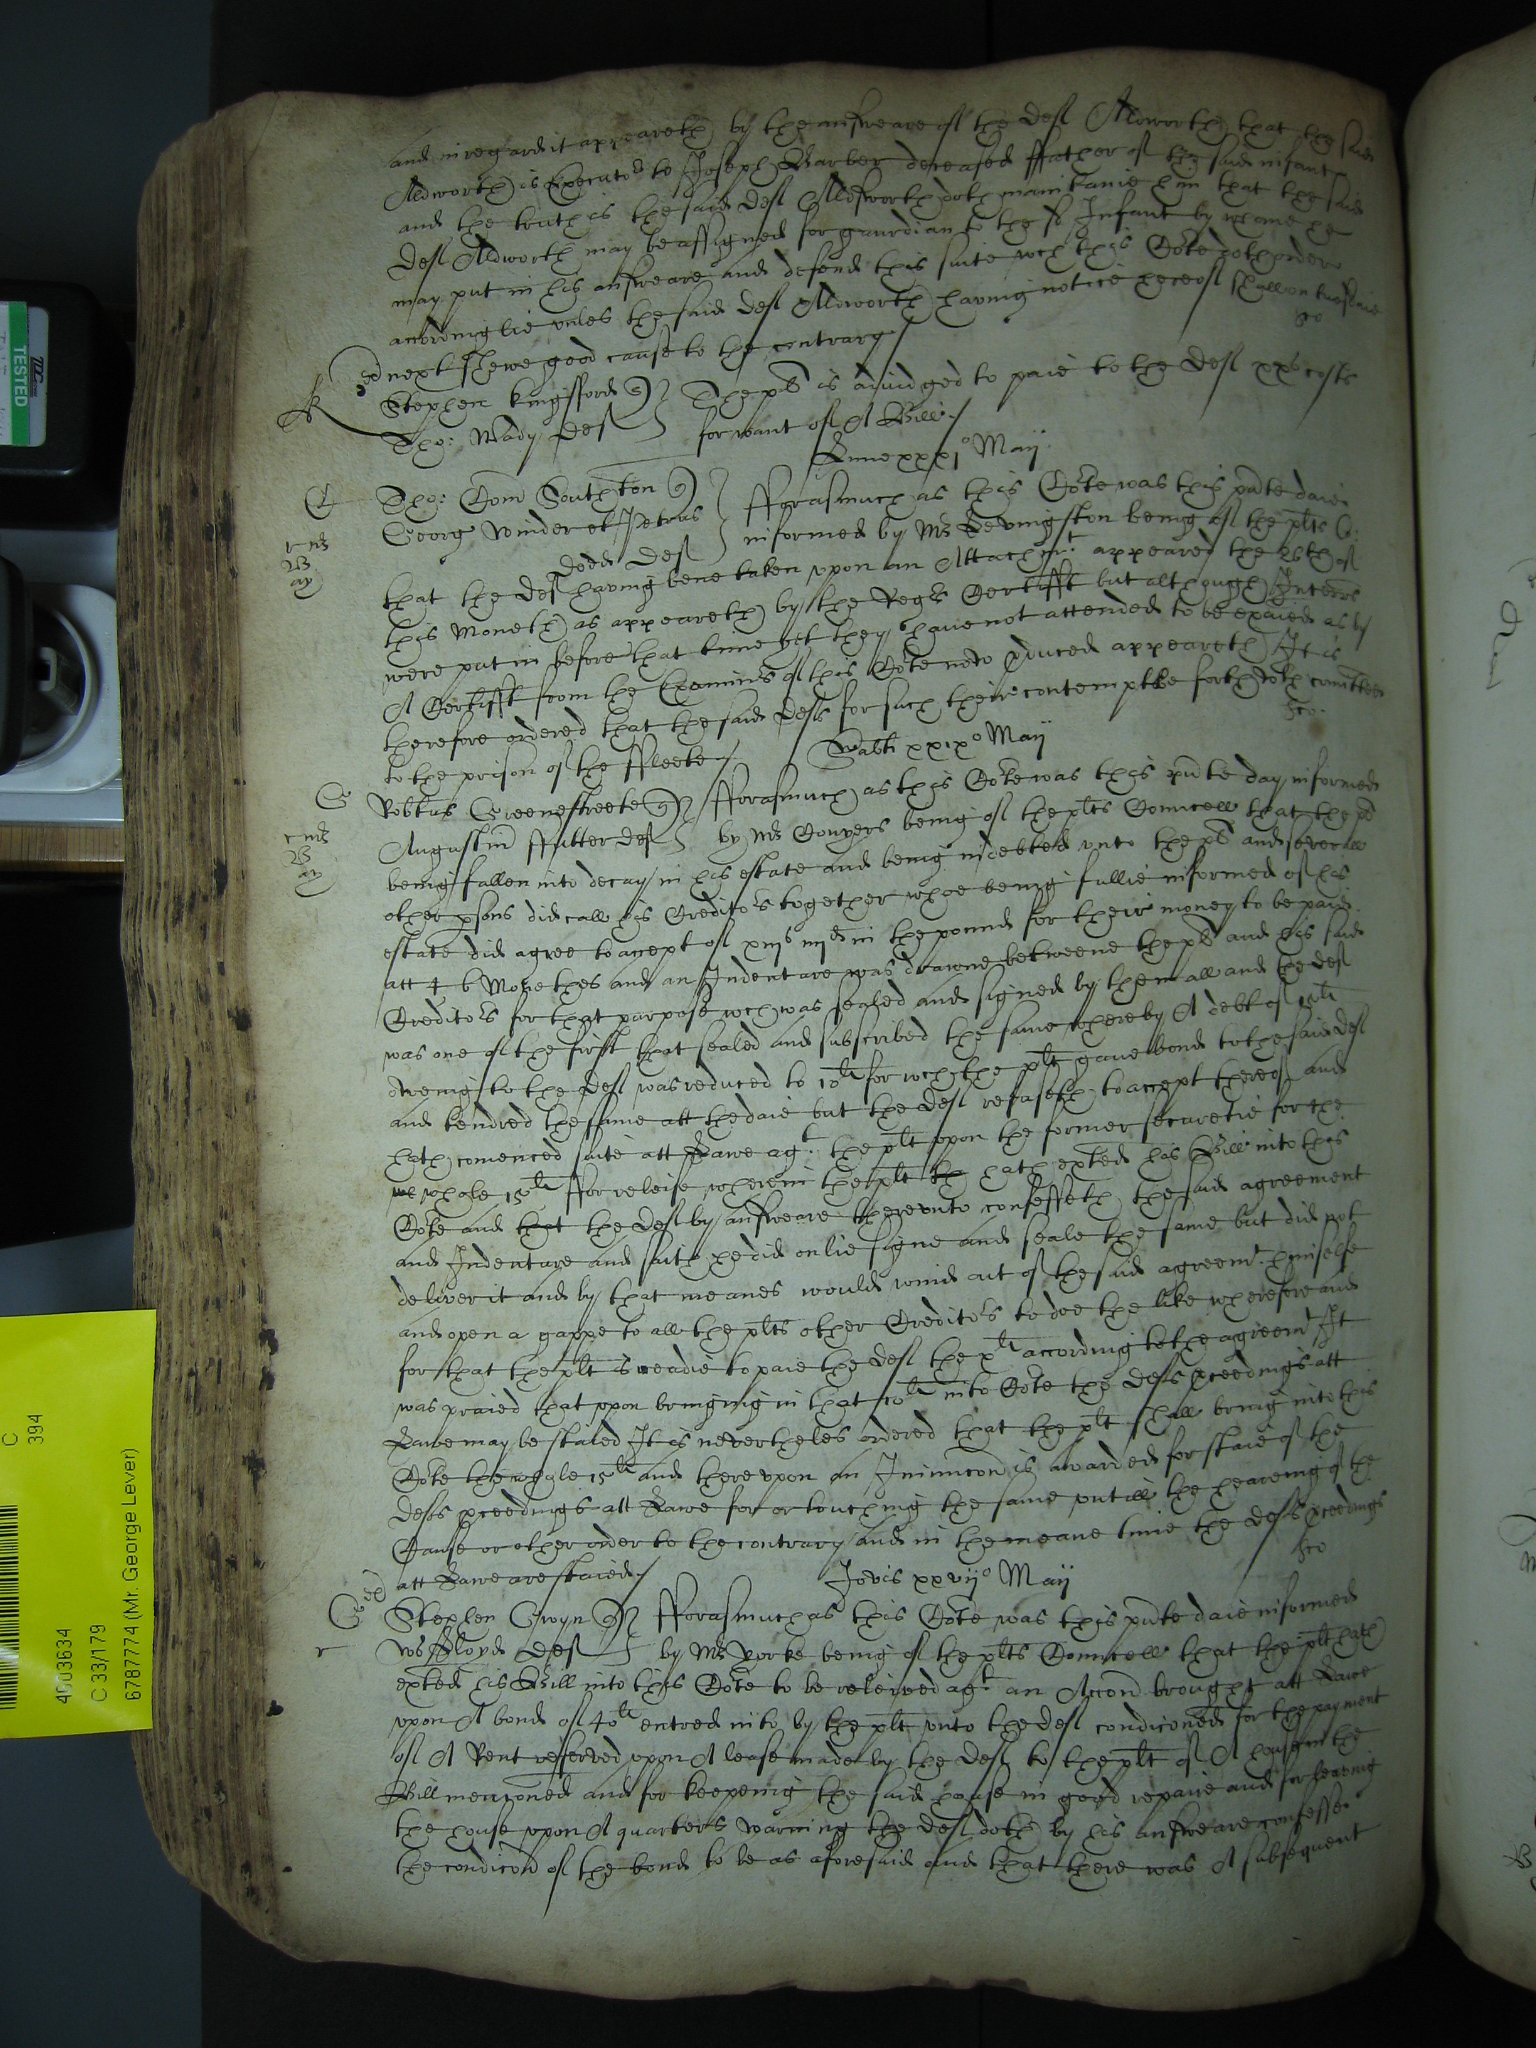 and in regard it appeareth by the answeare of the Def Aldworth that the said
Aldworth is Executor to Joseph Barber deceased ffather of the said infant
and the truth is the said Def Aldworth doth maintaine him that the said
Def Aldworth may be assigned for gaurdian to the sd Infant by whome he
may put in his answeare and defend this suite wch this Co:te doth order
accordinglie unles the said Def Aldworth having notice hereof shall on tuesdaie
next shewe good cause to the contrary
Stephen Kingsford q
Tho: Wady Def
The pl is adiudged to paie to the Def xxs costs
for want of A Bill
Lune xxxj° Maij
Tho: Com Southton q
Georg Winder et Petrus
Dodd Def
fforasmuch as this Co:te was this pnte daie
informed by Mr Levingston being of the plts C:
that the Def having bene taken upon an Attachmt appeared the 26th of
this Moneth as appeareth by the Regrs Certifft but although Interrs
were put in before that time yet they have not attended to be exaied as by
A Certifft from the Examinrs of this Co:te now pduced appeareth It is
therefore ordered that the said Defs for such their contempt be forthwth comitted
to the prison of the ffleete
Sabti xxix° Maij
Robtus Greenestreete q
Augustin ffutter Def
fforasmuch as this Co:te was this pnte day informed
by Mr Conyers being of the plts Councell that the pl
being fallen into decay in his estate and being indebted unto the pl and severall
other psons did call his Creditors together whoe being fullie informed of his
estate did agree to accept of xiijs iiijd in the pound for their money to be paid
att 4 6 Monethes and an Indenture was drawne betweene the pl and his said
Creditors for that purpose wch was sealed and signed by them all and the Def
was one of the first that sealed and subscribed the same whereby A debt of 15li
oweing to the Def was reduced to 10li for wch the plt gave bond to the said Def
and tendred the same att the daie but the Def refuseth to accept thereof and
hath comenced suite att Lawe agt the plt upon the former securetie for the
whole 15li ffor releife wherein the plt hath exhted his Bill into this
Co:te and that the Def by answeare thereunto confesseth the said agreement
and Indenture and saith he did onlie signe and seale the same but did not
deliver it and by that meanes would wind out of the said agreemt himselfe
and open a gappe to all the plts other Creditors to doe the like wherefore and
for that the plt is readie to paie the Def the xli according to the agreemt It
was praied that upon bringing in that 10li into Co:te the Defs pceedings att
Lawe may be staied It is nevertheles ordered that the plt shall bring into this
Co:te the whole 15li and thereupon an Iniunccon is awarded for staie of the
Defs pceedings att Lawe for or touching the same untill the heareing of the
Cause or other order to the contrary and in the meane time the Defs pceedings
att Lawe are staied
Jovis xxvij° Maij
Stephen Gwyn q
Ws ffloyd Def
fforasmuch as this Co:te was this pnte daie informed
by Mr Yorke being of the plts Councell that the plt hath
exhted his Bill into this Co:te to be releived agt an Accon brought att Lawe
upon A bond of 40li entred into by the plt unto the Def condiconed for the payment
of A Rent reserved upon A lease made by the Def to the plt of A house in the
Bill menconed and for keepeing the said house in good repaire and for leaving
the house upon A quarters warning the Def doth by his answeare confesse
the condicon of the bond to be as aforesaid and that there was A subsequent
TESTED
C
394
4003634
C 33/179
6787774 (Mr. George Lever)